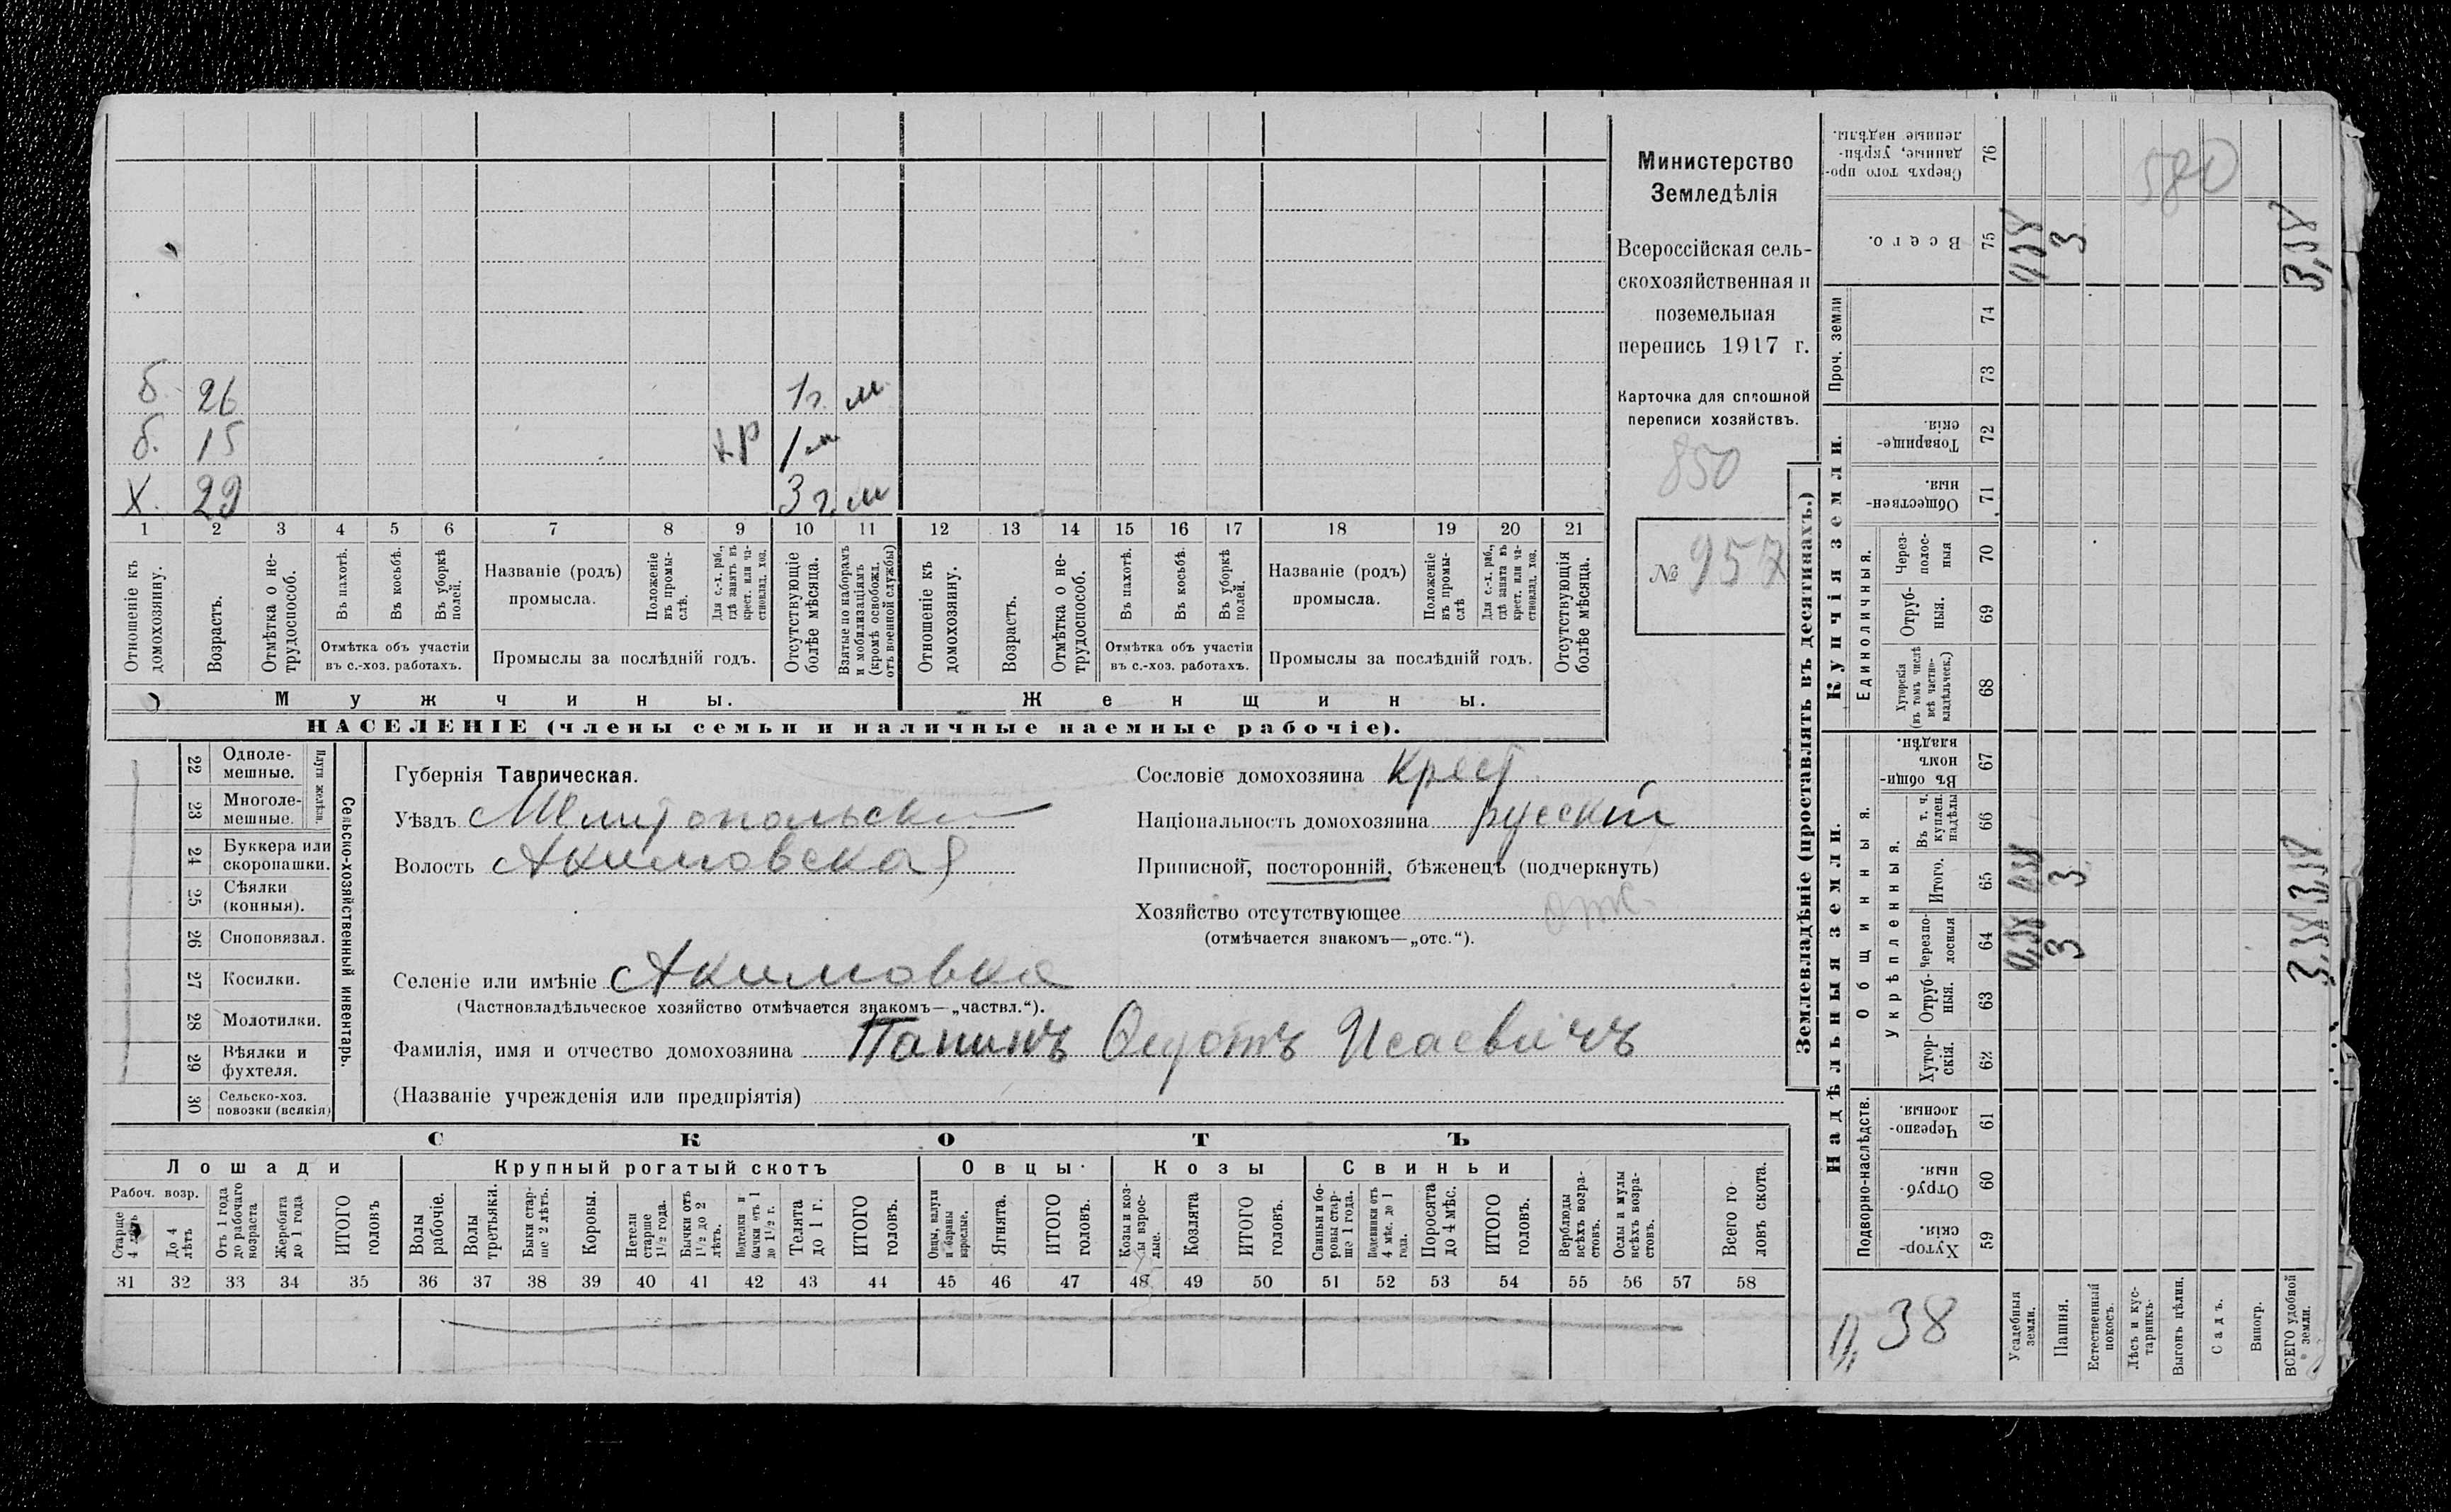 Министерство
Земледѣлія
Всероссійская сель-
скохозяйственная и
поземельная
перепись 1917 г.
Карточка для сплошной
переписи хозяйствъ.
850
№ 957
б. 26 1 г. м
б. 15 кр 1 м
Х. 29 3 г. м
1 2 3 4 5 6 7 8 9 10 11 12 13 14 15 16 17 18 19 20 21
Отношеніе къ домохозяину.
Возрастъ.
Отмѣтка о не-трудоспособ.
Въ пахотѣ.
Въ косьбѣ.
Въ уборкѣ полей.
Отмѣтка объ участіи
въ с.-хоз. работахъ.
Названіе (родъ)
промысла.
Положеніе въ промы-слѣ.
Для с.-х. раб., гдѣ занятъ въ крест. или ча-стновлад. хоз.
Промыслы за послѣдній годъ.
Отсутствующіе болѣе мѣсяца.
Взятые по наборамъ и мобилизаціямъ (кромѣ освобожд. отъ военной службы)
Отношеніе къ домохозяину.
Возрастъ.
Отмѣтка о не-трудоспособ.
Въ пахотѣ.
Въ косьбѣ.
Въ уборкѣ полей.
Отмѣтка объ участіи
въ с.-хоз. работахъ.
Названіе (родъ)
промысла.
Положеніе въ промы-слѣ
Для с.-х. раб., гдѣ занята въ крест. или ча-стновлад. хоз.
Промыслы за послѣдній годъ.
Отсутствующія болѣе мѣсяца.
Мужчины. Женщины.
НАСЕЛЕНІЕ (члены семьи и наличные наемные рабочіе).
22 Одноле-мешные.
23 Многоле-мешные.
Плуги желѣзн.
24 Буккера или скоропашки.
25 Сѣялки (конныя).
26 Сноповязал.
27 Косилки.
28 Молотилки.
29 Вѣялки и фухтеля.
30 Сельско-хоз. повозки (всякія)
Сельско-хозяйственный инвентарь.
Губернія Таврическая.
Уѣздъ Мелитопольск
Волость Акимовская
Сословіе домохозяина Крест
Національность домохозяина русскій
Приписной, посторонній, бѣженецъ (подчеркнуть)
Хозяйство отсутствующее отс.
(отмѣчается знакомъ—„отс.“).
Селеніе или имѣніе Акимовка
(Частновладѣльческое хозяйство отмѣчается знакомъ—„частвл.“).
Фамилія, имя и отчество домохозяина Папинъ Федотъ Исаевичъ
(Названіе учрежденія или предпріятія)
СКОТЪ
Лошади Крупный рогатый скотъ Овцы. Козы Свиньи
Рабоч. возр.
Старше 4 лѣтъ
До 4 лѣтъ
Отъ 1 года до рабочаго возраста
Жеребята до 1 года
ИТОГО головъ
Волы рабочіе.
Волы третьяки.
Быки стар-ше 2 лѣтъ.
Коровы.
Нетели старше 1½ года.
Бычки отъ 1½ до 2 лѣтъ.
Подтелки и бычки отъ 1 до 1½ г.
Телята до 1 г.
ИТОГО головъ.
Овцы, валухи и бараны взрослые.
Ягнята.
ИТОГО головъ.
Козы и коз-лы взрос-лые.
Козлята
ИТОГО головъ.
Свиньи и бо-ровы стар-ше 1 года.
Подсвинки отъ 4 мѣс. до 1 года.
Поросята до 4 мѣс.
ИТОГО головъ.
Верблюды всѣхъ возра-стовъ.
Ослы и мулы всѣхъ возра-стовъ.
Всего го-ловъ скота.
31 32 33 34 35 36 37 38 39 40 41 42 43 44 45 46 47 48 49 50 51 52 53 54 55 56 57 58
Землевладѣніе (проставлять въ десятинахъ.)
Надѣльныя земли.
Купчія земли.
Проч. земли
Подворно-наслѣдств.
Общинныя.
Укрѣпленныя.
Единоличныя.
59 Хутор-скія.
60 Отруб-ныя.
61 Черезпо-лосныя.
62 Хутор-скія.
63 Отруб-ныя.
64 Черезпо-лосныя
65 Итого.
66 Въ т. ч. куплен. надѣлы
67 Въ общи-номъ владѣн.
68 Хуторскія (въ томъ числѣ всѣ частно-владѣльческ.)
69 Отруб-ныя.
70 Через-полос-ныя
71 Обществен-ныя.
72 Товарище-скія.
73
74
75 Всего.
76 Сверхъ того про-данные, укрѣп-ленные надѣлы.
Усадебныя земли. 0,38 0,38 0,38
Пашня. 3 3 3
Естественный покосъ.
Лѣсъ и кус-тарникъ.
Выгонъ цѣлин.
Садъ.
Виногр.
ВСЕГО удобной земли. 3,38 3,38 3,38
580
0,38